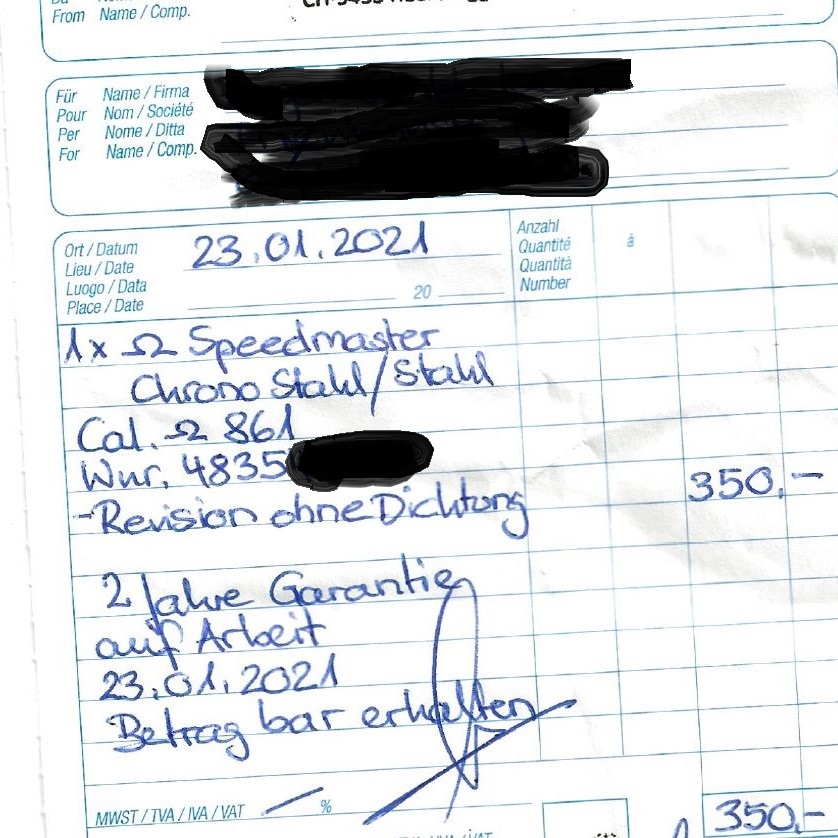 From Name / Comp.
Für Name / Firma
Pour Nom / Société
Per Nome / Ditta
For Name / Comp.
Ort / Datum 23.01.2021
Lieu / Date
Luogo / Data
Place / Date 20
Anzahl à
Quantité
Quantità
Number
1x Ω Speedmaster
Chrono Stahl/Stahl
Cal. Ω 861
Wnr. 4835
-Revision ohne Dichtung 350.-
2 Jahre Garantie
auf Arbeit
23.01.2021
Betrag bar erhalten
MWST / TVA / IVA / VAT / % 350.-